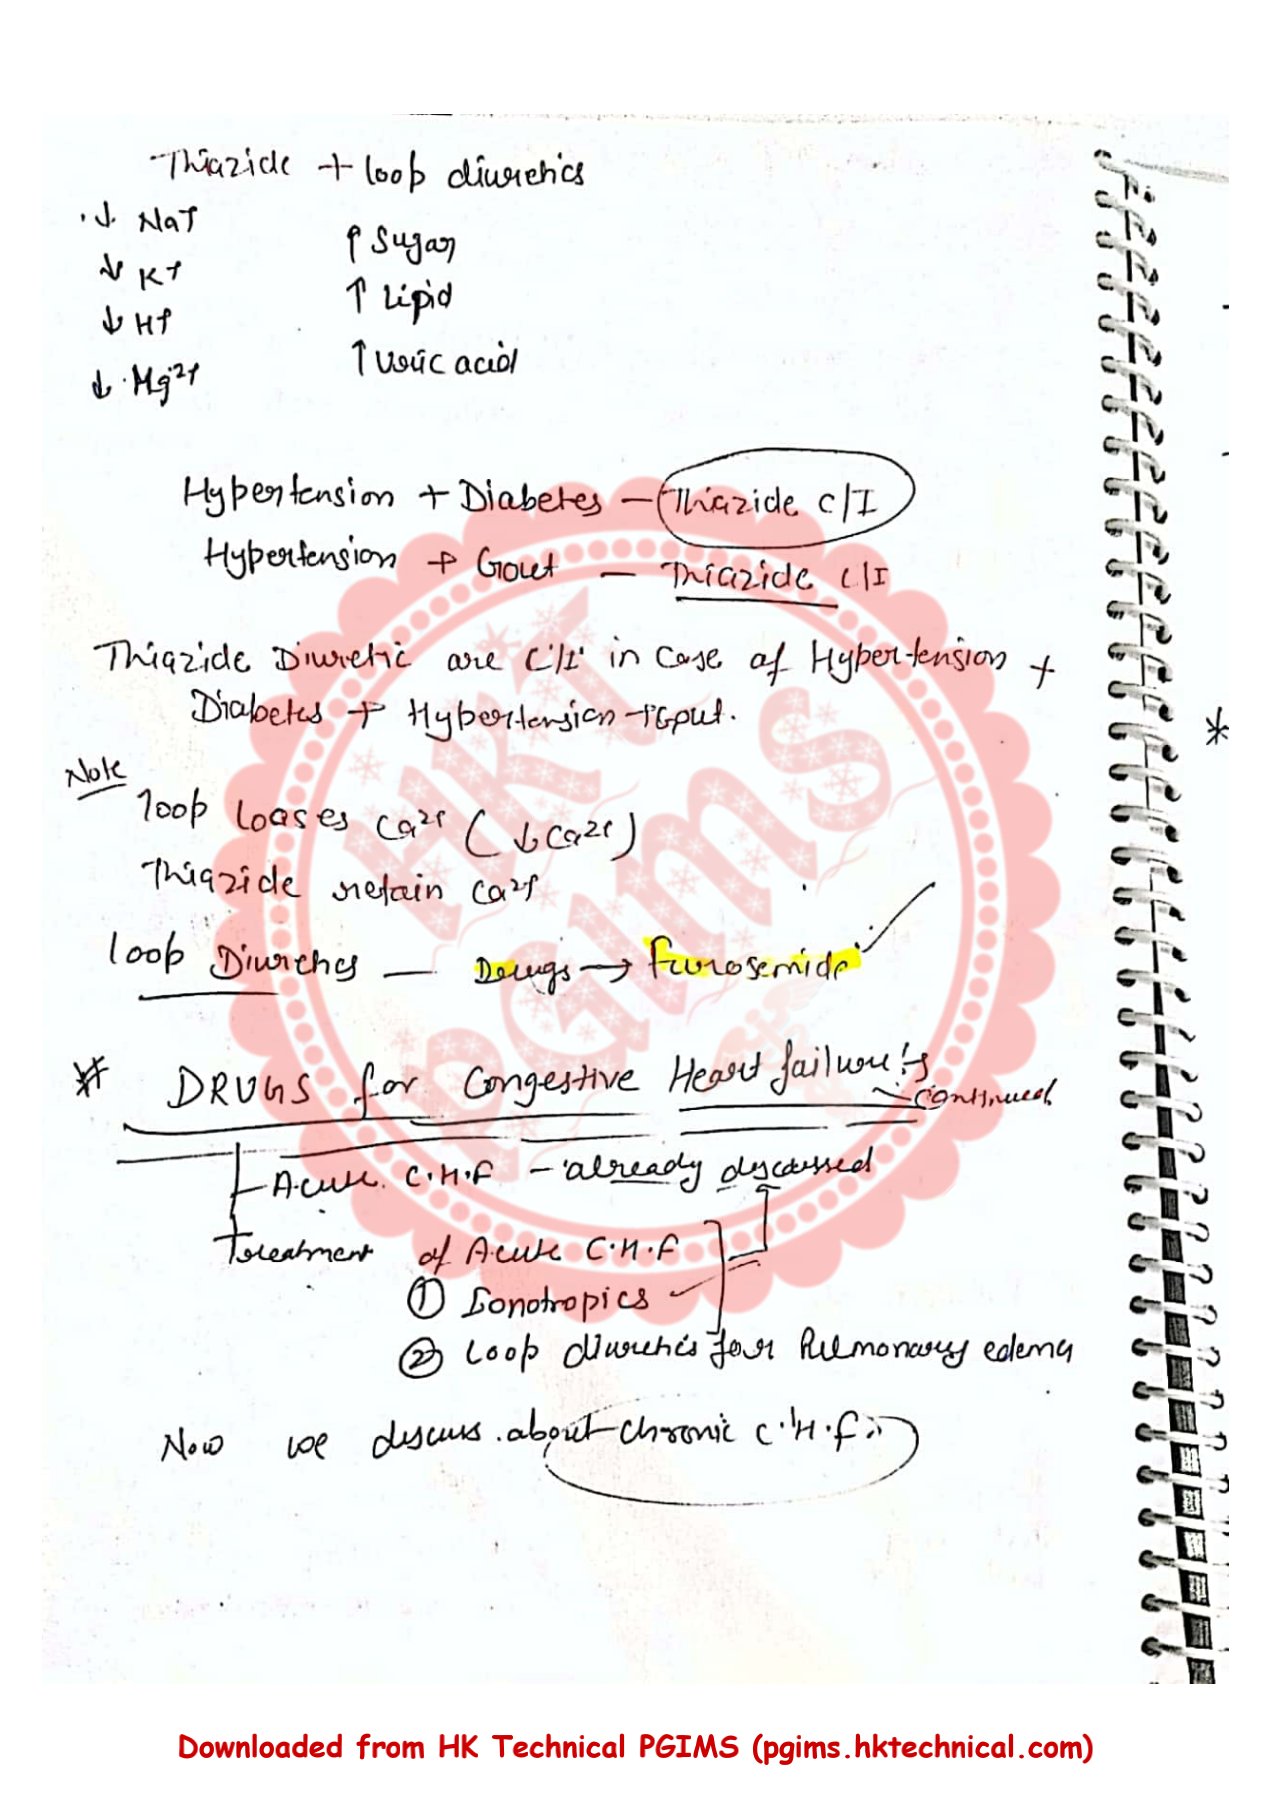 Thiazide + loop diuretics
↓ Na+
↓ K+
↓ H+
↓ Mg2+
↑ Sugar
↑ Lipid
↑ Uric acid
Hypertension + Diabetes — Thiazide C/I
Hypertension + Gout — Thiazide C/I
Thiazide Diuretic are C/I in case of Hypertension +
Diabetes + Hypertension + Gout.
Note
loop loases Ca2+ (↓ Ca2+)
Thiazide retain Ca2+
loop Diuretics — Drugs → furosemide
* DRUGS for Congestive Heart failure:-
continued
Acute C.H.F - already discussed
Treatment of Acute C.H.F
① Ionotropics
② Loop diuretics for Pulmonary edema
Now we discuss about chronic C.H.F:-
*
HKT
PGIMS
Downloaded from HK Technical PGIMS (pgims.hktechnical.com)